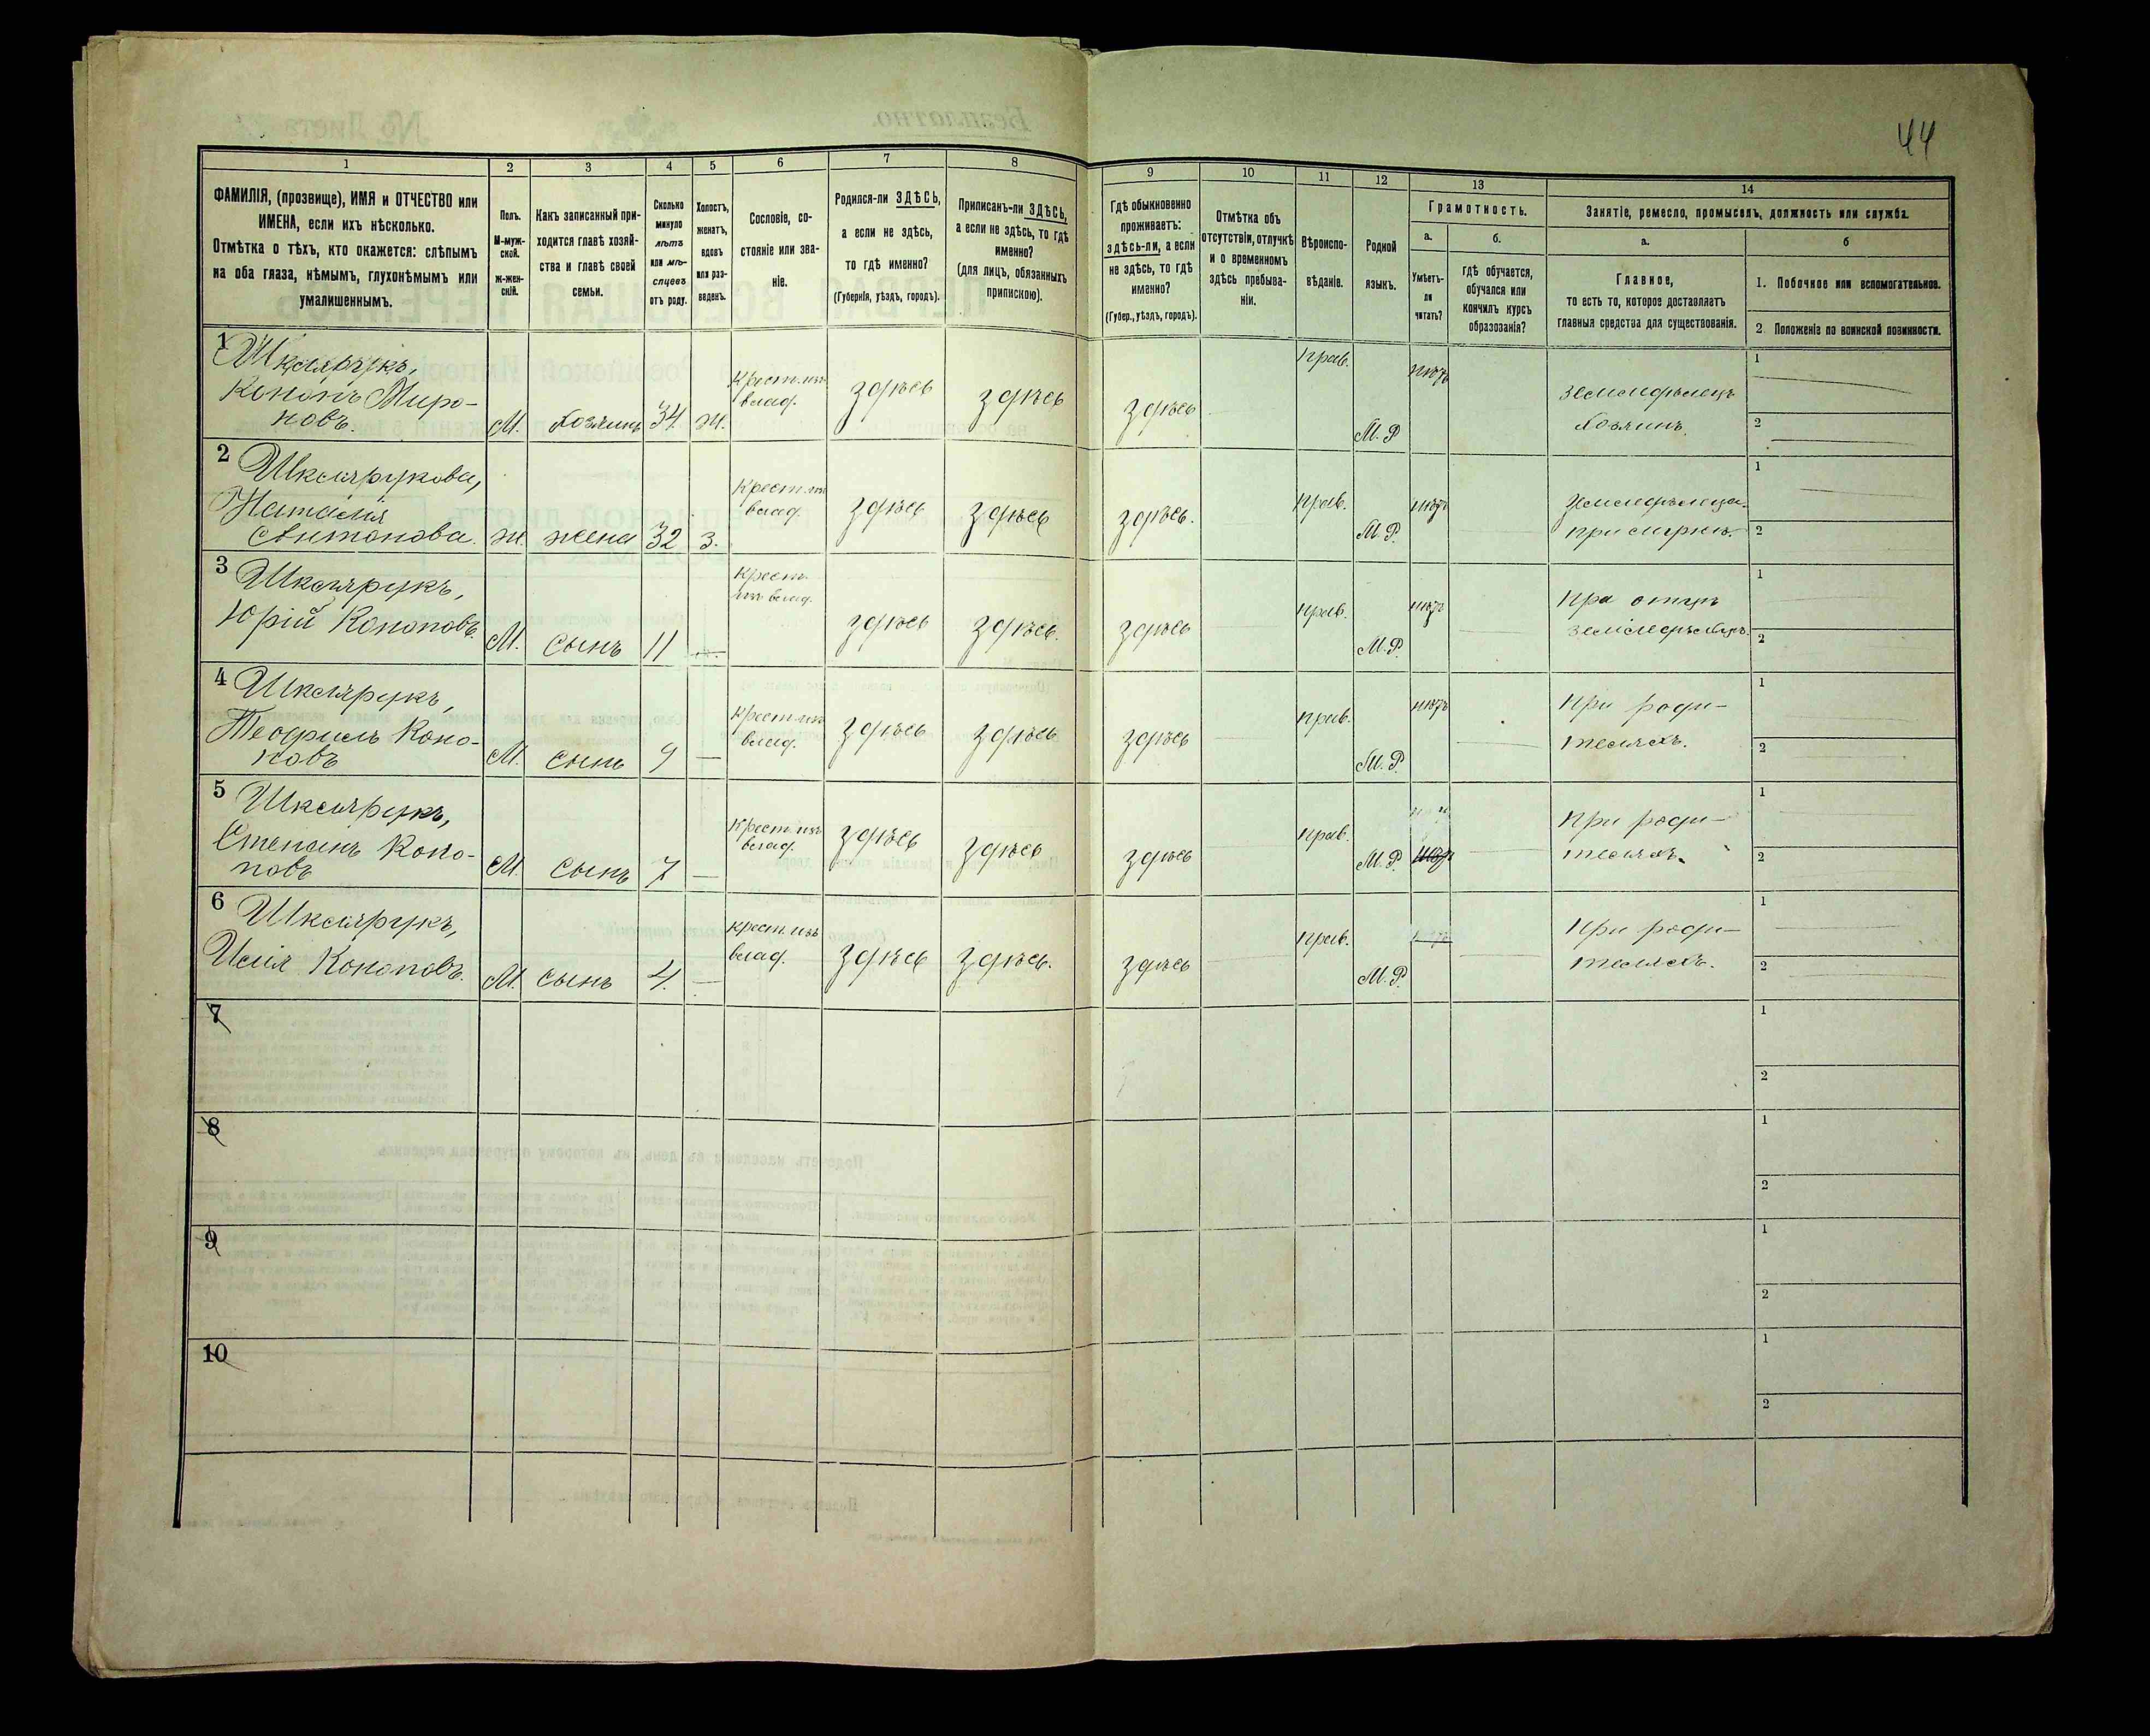 44
1
2
3
4
5
6
7
8
9
10
11
12
13
14
ФАМИЛІЯ, (прозвище), ИМЯ и ОТЧЕСТВО или
ИМЕНА, если ихъ нѣсколько.
Отмѣтка о тѣхъ, кто окажется: слѣпымъ
на оба глаза, нѣмымъ, глухонѣмымъ или
умалишеннымъ.
Полъ.
М-муж-
ской.
Ж-жен-
скій.
Какъ записанный при-
ходится главѣ хозяй-
ства и главѣ своей
семьи.
Сколько
минуло
лѣтъ
или мѣ-
сяцевъ
отъ роду.
Холостъ,
женатъ,
вдовъ
или раз-
веденъ.
Сословіе, со-
стояніе или зва-
ніе.
Родился-ли ЗДѢСЬ,
а если не здѣсь,
то гдѣ именно?
(Губернія, уѣздъ, городъ).
Приписанъ-ли ЗДѢСЬ,
а если не здѣсь, то гдѣ
именно?
(для лицъ, обязанныхъ
припискою).
Гдѣ обыкновенно
проживаетъ:
здѣсь-ли, а если
не здѣсь, то гдѣ
именно?
(Губер., уѣздъ, городъ).
Отмѣтка объ
отсутствіи, отлучкѣ
и о временномъ
здѣсь пребыва-
ніи.
Вѣроиспо-
вѣданіе.
Родной
языкъ.
Грамотность.
а.
Умѣетъ-
ли
читать?
б.
гдѣ обучается,
обучался или
кончилъ курсъ
образованія?
Занятіе, ремесло, промыселъ, должность или служба.
а.
Главное,
то есть то, которое доставляетъ
главныя средства для существованія.
б
1. Побочное или вспомогательное.
2. Положеніе по воинской повинности.
1
Шклярукъ,
Кононъ Миро-
новъ.
М. Хозяинъ 34 Ж.
Крест. изъ
влад.
здѣсь здѣсь здѣсь прав. М.Р. нѣтъ
земледѣлецъ
хозяинъ.
1
2
2
Шклярукова,
Наталія
Антонова. Ж. жена 32 З.
Крест. изъ
влад.
здѣсь здѣсь здѣсь. прав. М.Р. нѣтъ
земледѣлица
при мужѣ.
1
2
3
Шклярукъ,
Юрій Кононовъ. М. сынъ 11 —
Крест.
изъ влад.
здѣсь здѣсь. здѣсь прав. М.Р. нѣтъ
при отцѣ
1
2
4
Шклярукъ,
Теофилъ Коно-
новъ М. сынъ 9 —
Крест. изъ
влад.
здѣсь здѣсь здѣсь прав. М.Р. нѣтъ
при роди-
теляхъ.
1
2
5
Шклярукъ,
Степанъ Коно-
новъ М. сынъ 7 —
Крест. изъ
влад.
здѣсь здѣсь здѣсь прав. М.Р.
при роди-
теляхъ.
1
2
6
Шклярукъ,
Илія Кононовъ. М. сынъ 4. —
Крест. изъ
влад.
здѣсь здѣсь. здѣсь прав. М.Р.
при роди-
теляхъ.
1
2
7
1
2
8
1
2
9
1
2
10
1
2